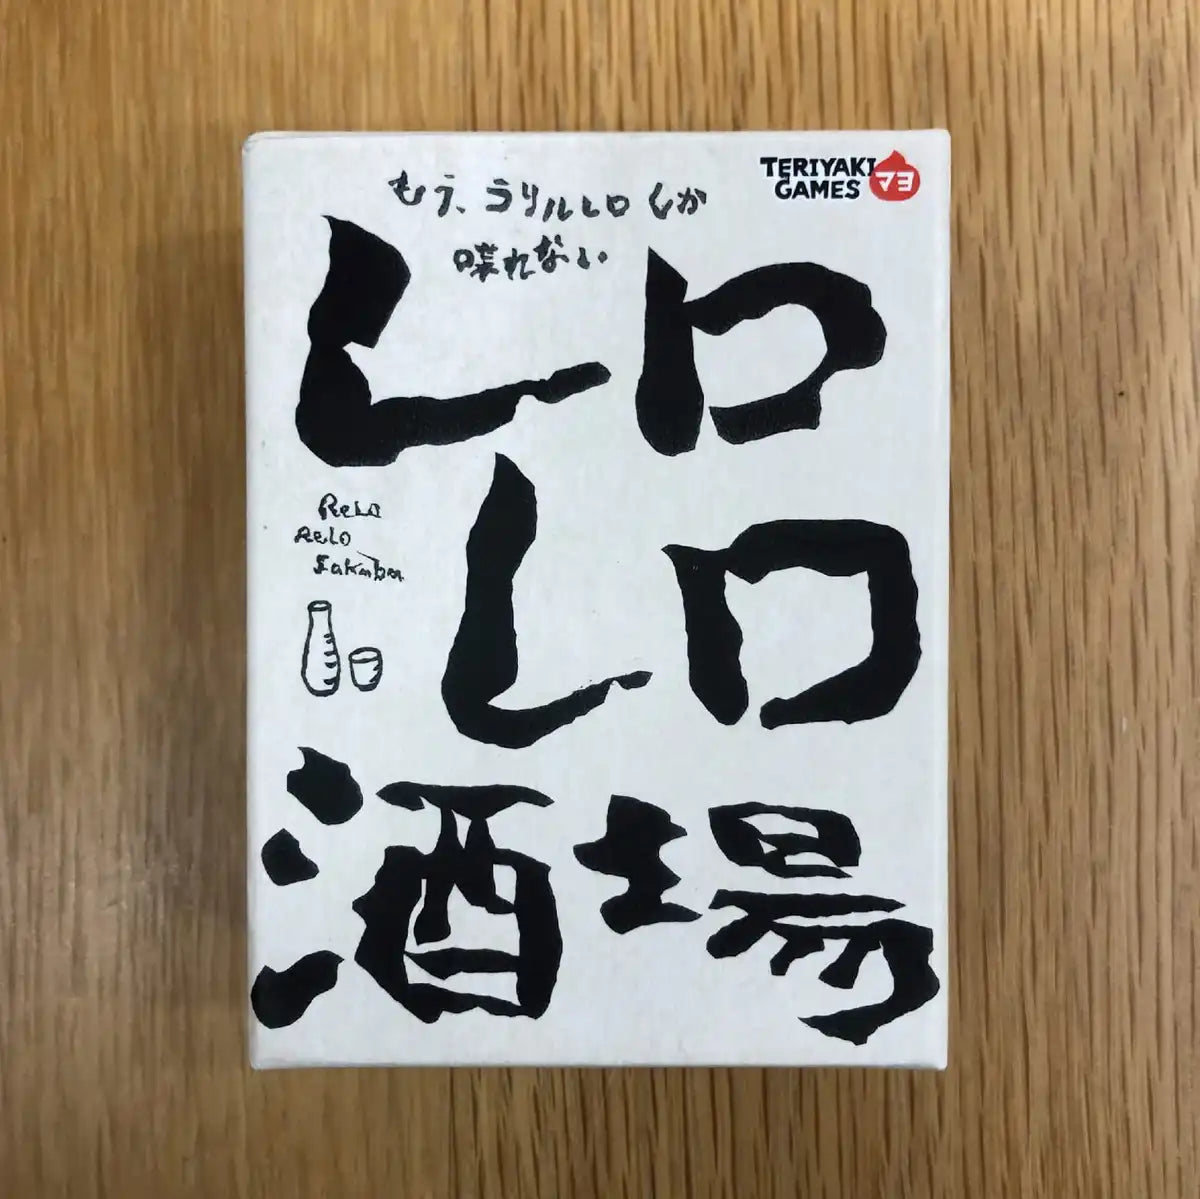 もう、ラリルレロしか
喋れない
TERIYAKI
GAMES
マヨ
レロ
レロ
Relo
Relo
Sakaba
酒場